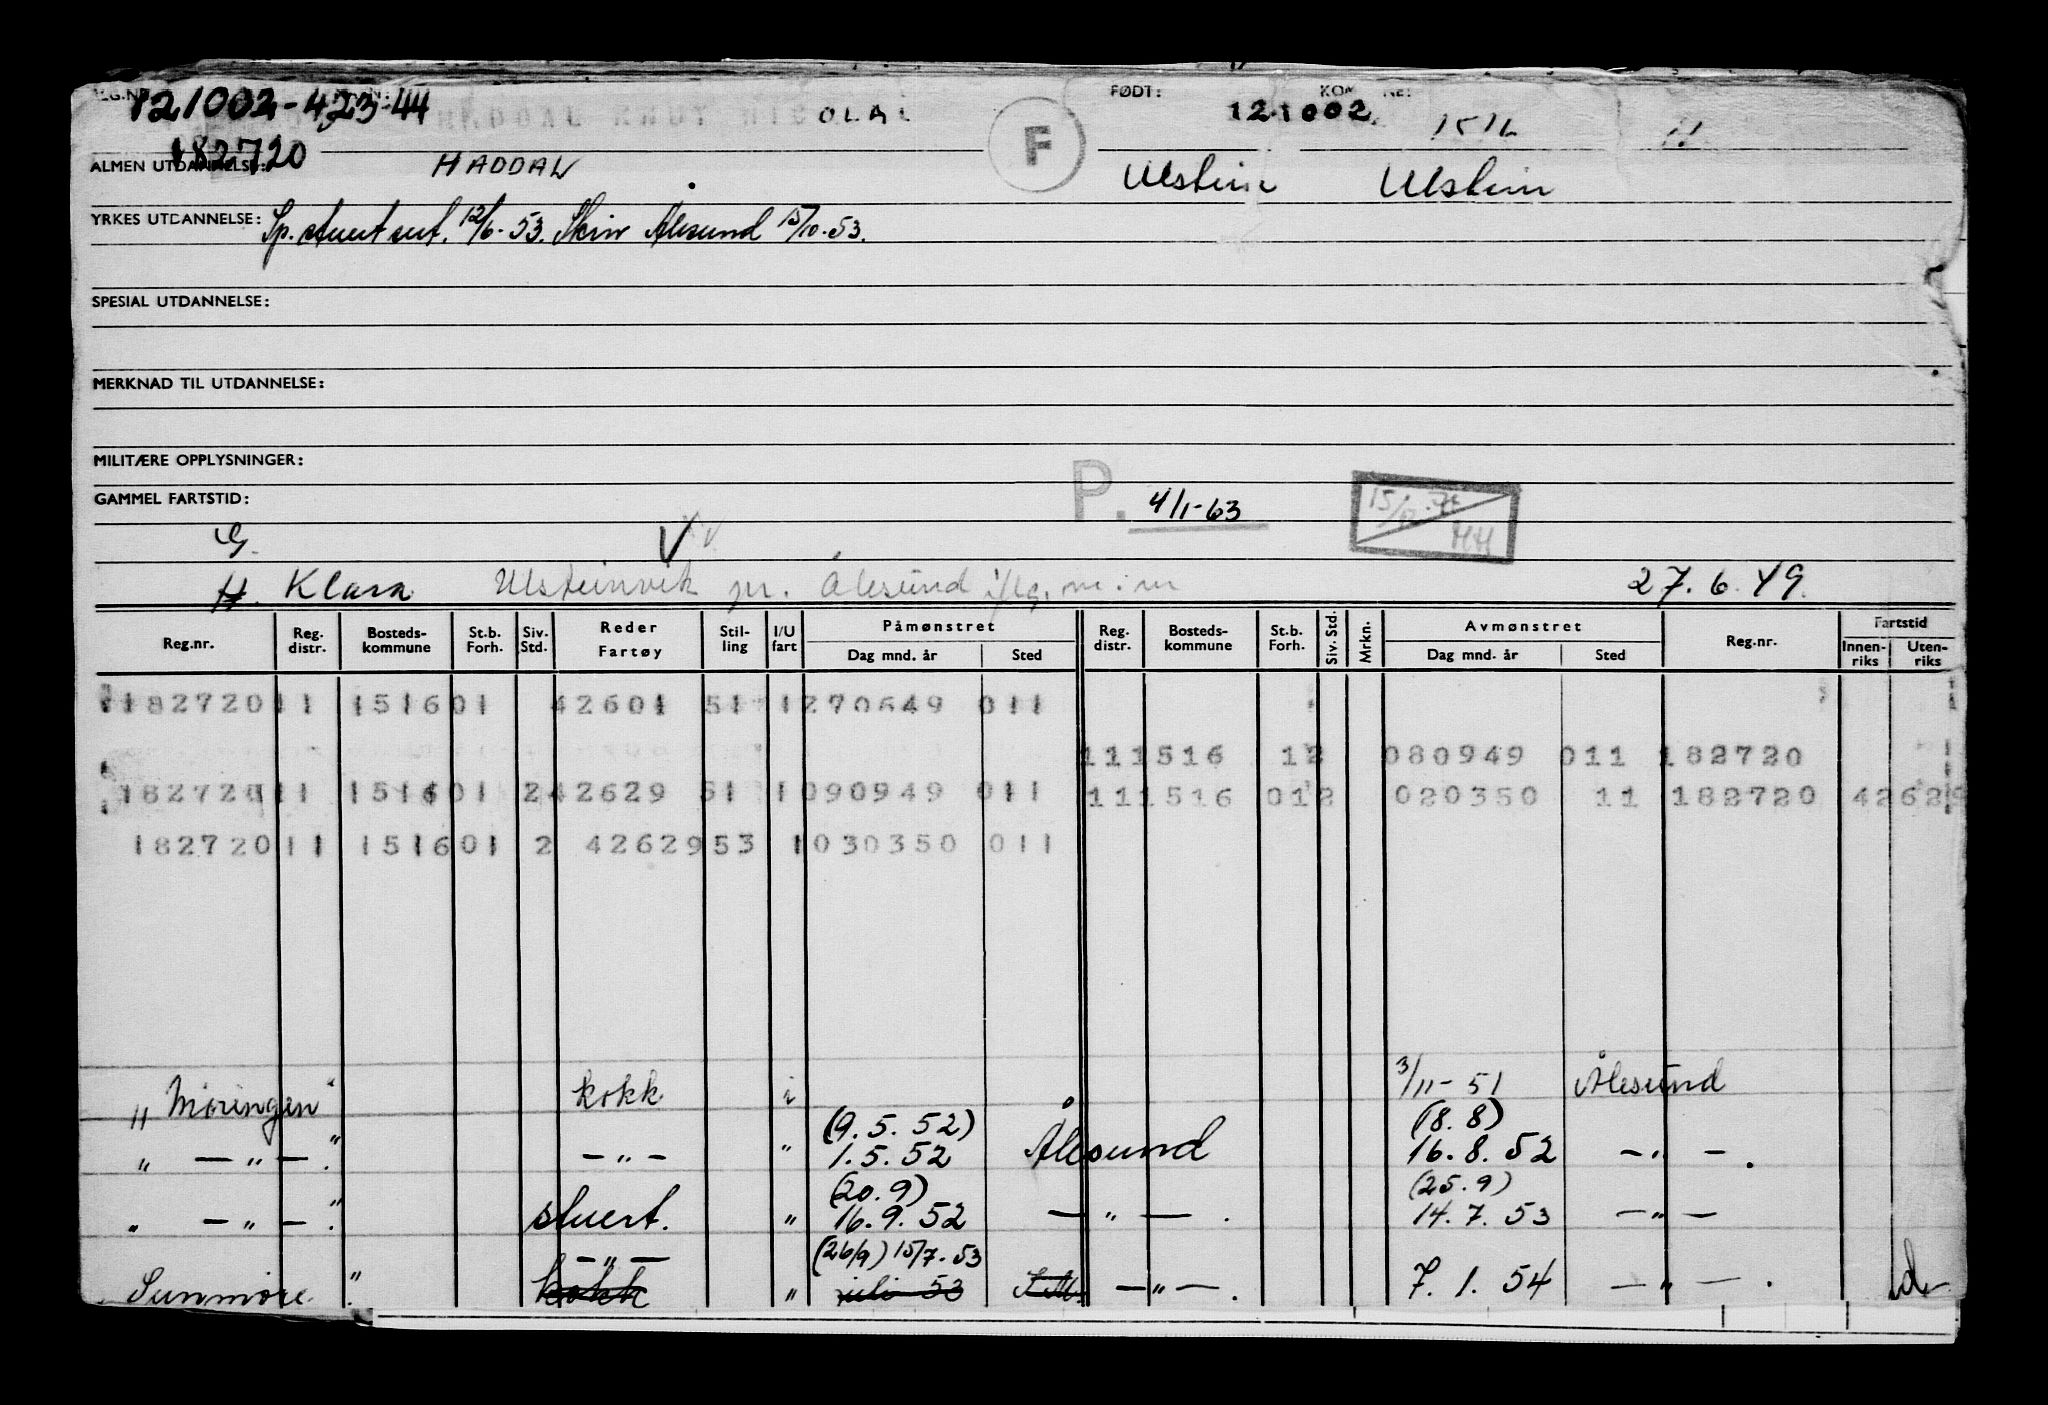 121002-42344 OLAI F FØDT: 121002 1516 11
182720
ALMEN UTDANNELSE: HADDAL Ulstein Ulstein
YRKES UTDANNELSE: Sp. stuert sert. 12/6-53. Ålesund 15/10-53.
SPESIAL UTDANNELSE:
MERKNAD TIL UTDANNELSE:
MILITÆRE OPPLYSNINGER:
GAMMEL FARTSTID: P. 4/1-63
HH
G. V
H. Klara Ulsteinvik pr. Ålesund iflg. m.m 27.6.49.
Reg.nr. Reg. distr. Bosteds-kommune St.b. Forh. Siv. Std. Reder Fartøy Stil-ling I/U fart Påmønstret Dag mnd. år Sted Reg. distr. Bosteds-kommune St.b. Forh. Siv. Std. Mrkn. Avmønstret Dag mnd. år Sted Reg.nr. Fartstid Innen-riks Uten-riks
182720 11 1516 01 42601 51 1 270649 011
11 1516 12 080949 011 182720
182720 11 1516 01 2 42629 51 1 090949 011 11 1516 01 2 020350 11 182720 42629
182720 11 1516 01 2 42629 53 1 030350 011
"Møringen" kokk i 3/11-51 Ålesund
(9.5.52) (18.8)
" — " — ." — " — " 1.5.52 Ålesund 16.8.52 — " — .
(20.9) (25.9)
" — " — ." stuert. " 16.9.52 — " — . 14.7.53 — " —
— " — (26/9) 15/7.53
Sunnmøre." kokk " juli 53 — " — . 7.1.54 — " — .